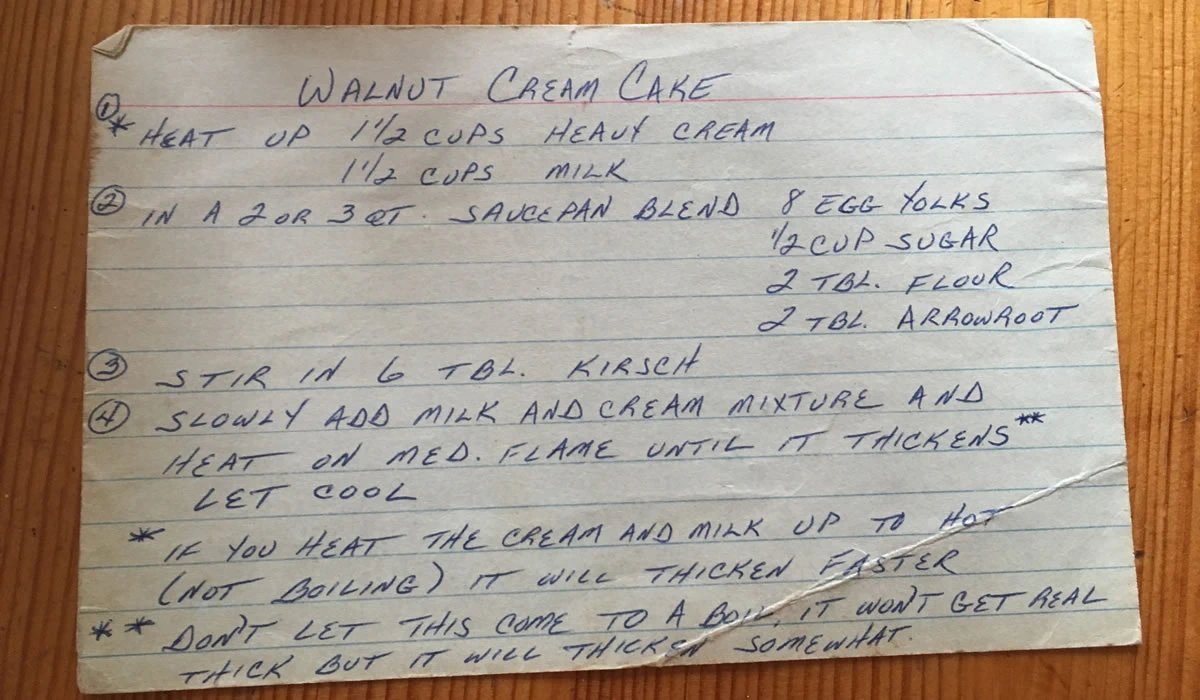 WALNUT CREAM CAKE
① * HEAT UP 1 1/2 CUPS HEAVY CREAM
1 1/2 CUPS MILK
② IN A 2 OR 3 QT. SAUCEPAN BLEND 8 EGG YOLKS
1/2 CUP SUGAR
2 TBL. FLOUR
2 TBL. ARROWROOT
③ STIR IN 6 TBL. KIRSCH
④ SLOWLY ADD MILK AND CREAM MIXTURE AND
HEAT ON MED. FLAME UNTIL IT THICKENS **
LET COOL
* IF YOU HEAT THE CREAM AND MILK UP TO HOT
(NOT BOILING) IT WILL THICKEN FASTER
** DON'T LET THIS COME TO A BOIL, IT WON'T GET REAL
THICK BUT IT WILL THICKEN SOMEWHAT.